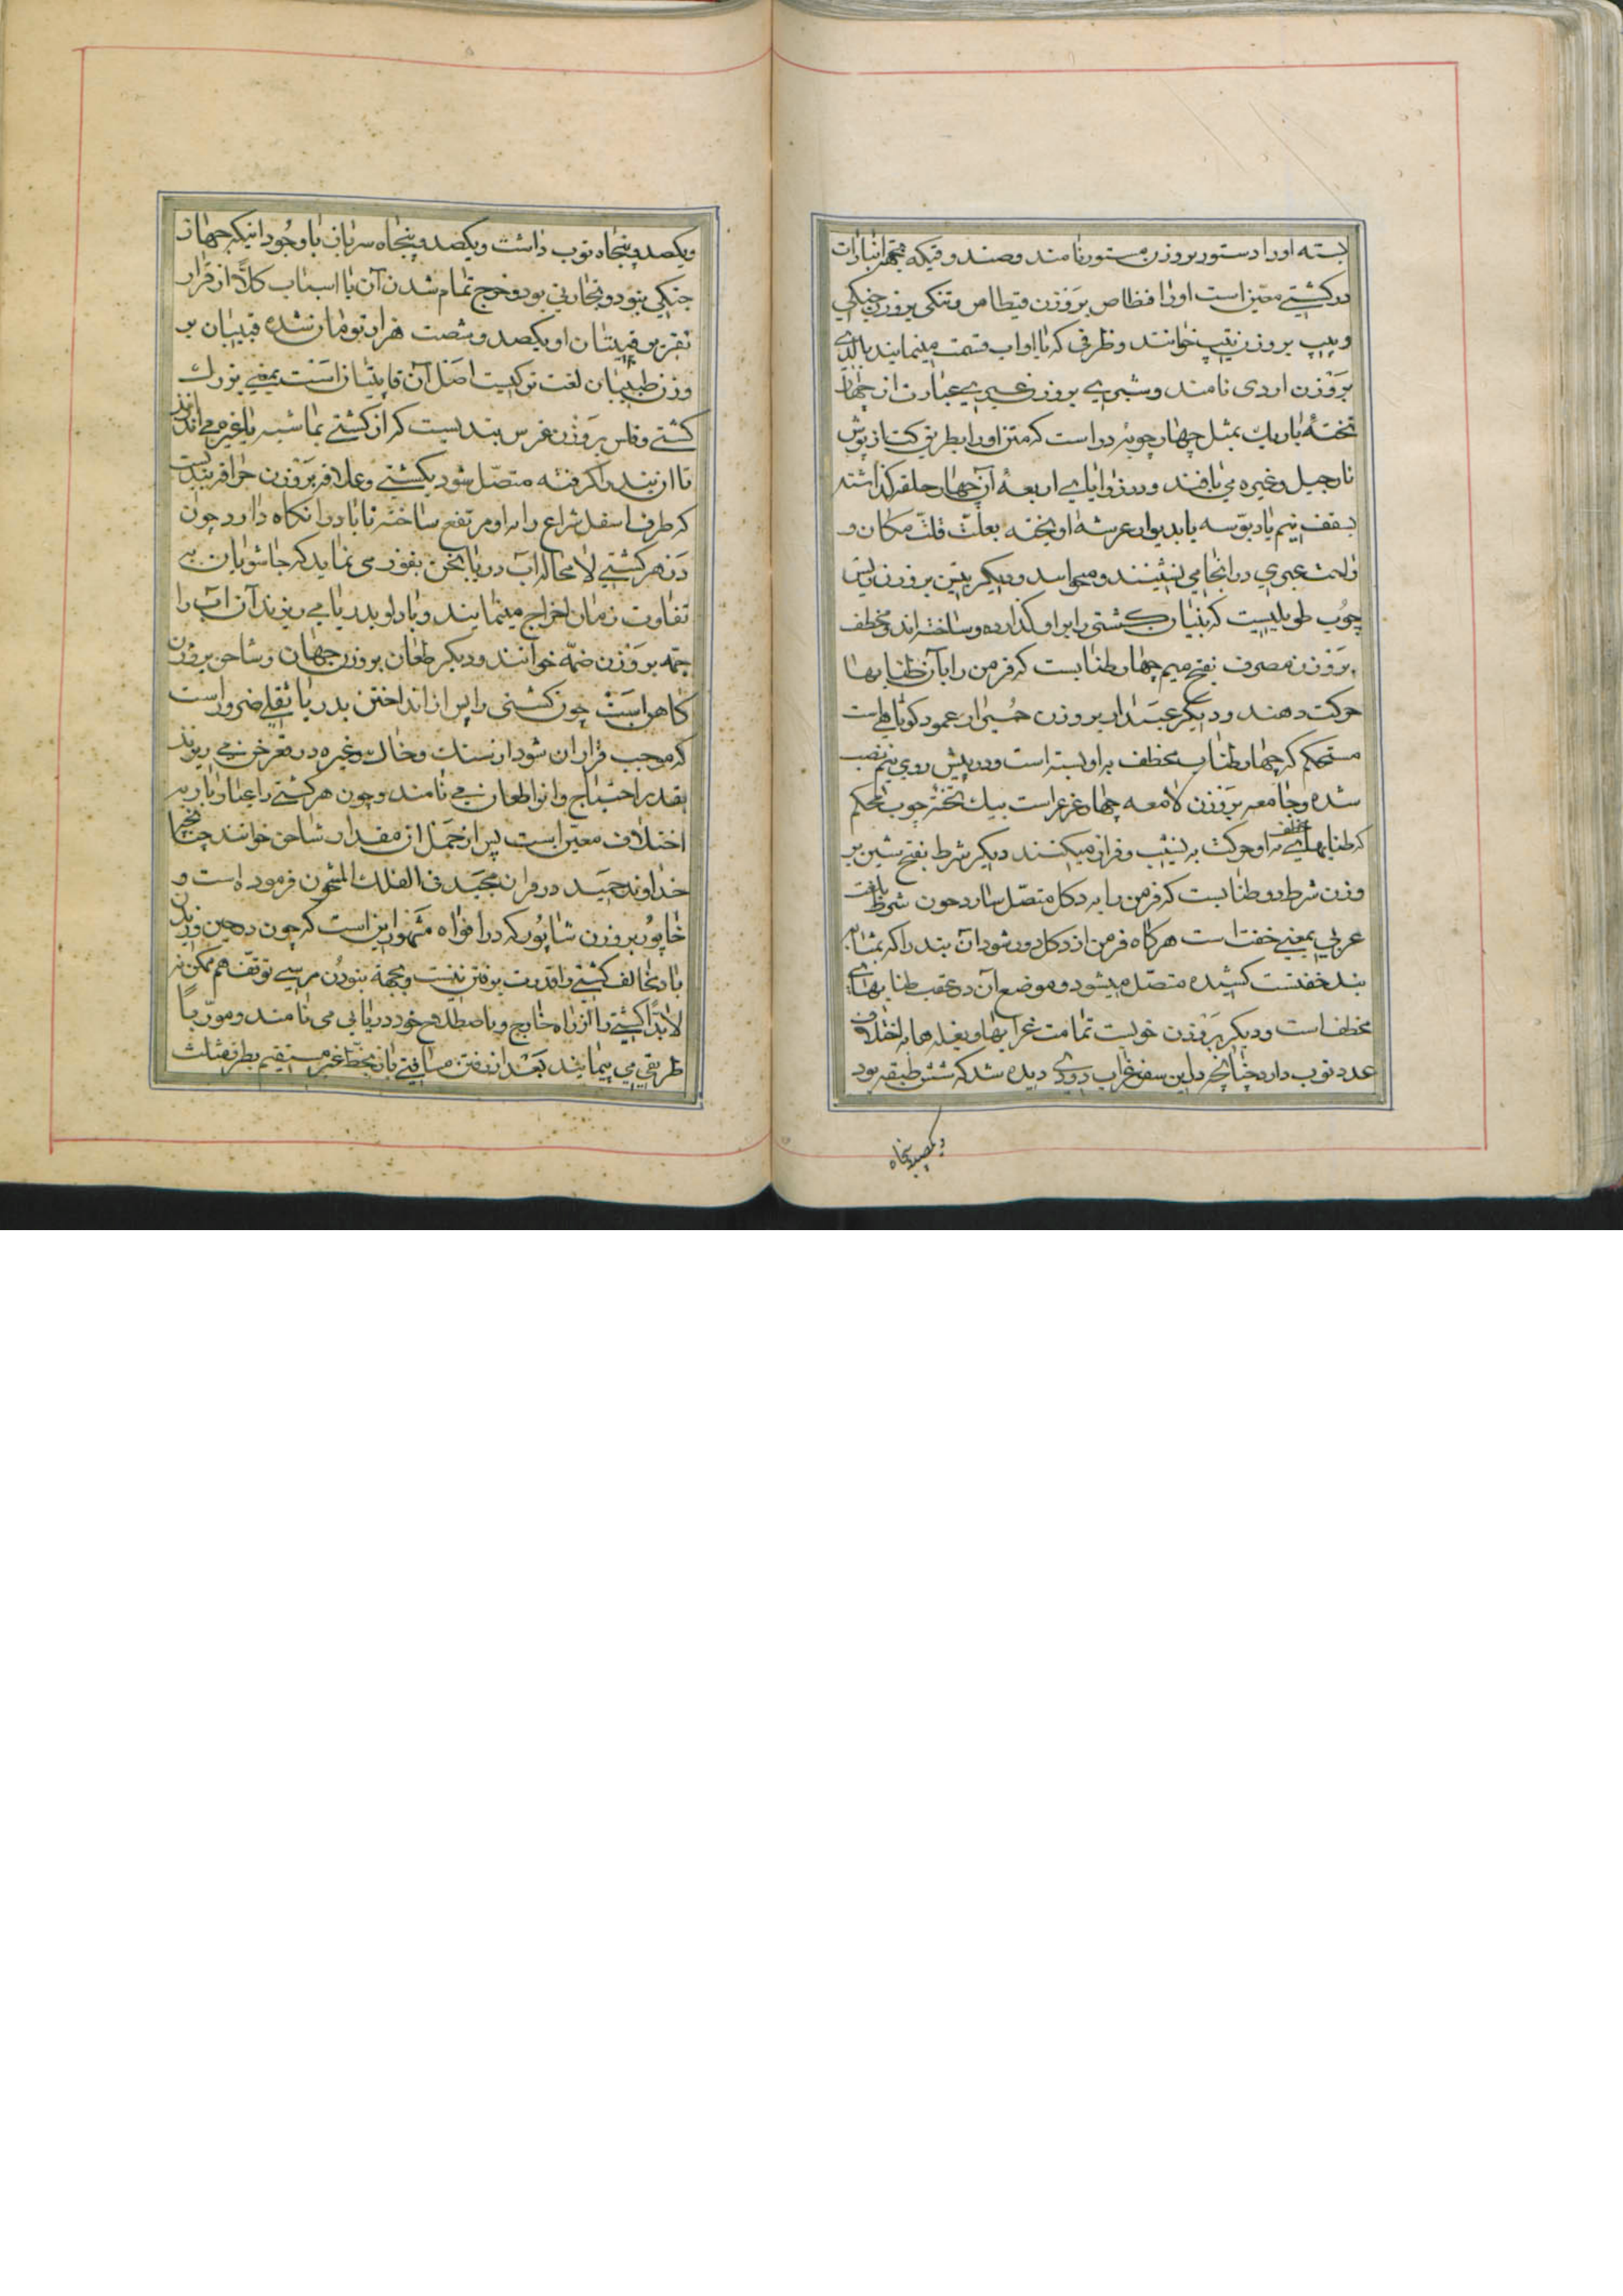 بسته اورا دستور بروزن مستور نامند و صندوقیکه بجهة انبارات
در کشتی معین است اورا فنطاص بروزن قیطاس و تنکی بروزن جنکی
و پیپ بروزن تیپ خوانند و ظرفی که با او اب قسمت مینمایند بالدی
بروزن اردی نامند و شبری بروزن عبری عبارت از چهار
تخته باریك بمثل چهارچوبه در است که متن اورا بطریق کتان پوش
نارجیل و غیره می بافند و در زوایای اربعهٔ آن چهار حلقه کذاشته
بسقف نیم یا دبوسه یا بدیوار عرشه اویخته بعلت قلت مکان و
راحت عبری در انجا می نشینند و میخوابند و دیکر بیس بروزن
چوب طویلیست که بنیان کشتی را بر او کذارده و ساخته اند و مخطف
بروزن مصرف بفتح میم چهار طنابست که فرمن را بآن طنابها
حرکت دهند و دیکر عبدار بروزن عمود کوتاهی است
مستحکم که چهار طناب مخطف به او بسته است و در پیش روی نیم نصب
شده و جامعه بروزن لامعه چهار غرغر است بیك تخته چوب محکم
که طنابهای مخطف به او حرکت به نشیب و فراز میکنند دیکر شرط بفتح شین بر
وزن شرط دو طنابست که فرمن را به دکل متصل سازد چون شرط بلغت
عربی بمعنی خفت است هرکاه فرمن از دکل دور شود آن بند را که بمثابه
بند خفتست کشیده متصل میشود و موضع آن در عقب طنابهای
مخطف است و دیکر بروزن خویست تمامت غرابها و بغله ها به اختلاف
عدد توب دارد چنانچه در این سفر غراب دودی دیده شد که شش طبقه بود
ویکصدوپنجاه
ویکصدوپنجاه توب داشت ویکصدوپنجاه سرباز با وجود اینکه جهاز
جنکی نبود و تجارتی بود و خرج تمام شدن آن با اسباب کلاً از قرار
تقریر قپیتان او یکصد و شصت هزار تومان شده قپیتان بر
وزن طبیبان لغت ترکیبست اصل آن قاپیتان است بمعنی بزرك
کشتی و فلس بروزن غرس بندیست که از کشتی بماشبه یا غیره می اندازند
تا ان بند را کرفته متصل شود بکشتی و علافه بروزن خرافه بندیست
که طرف اسفل شراع را به او مرتفع ساخته تا باد را نکاه دارد چون
در هر کشتی لامحاله اب دریا بخن نفوذ می نماید که جاشویان بی
تفاوت زمان اخراج مینمایند و با دلو بدریا می ریزند آن اب را
جمه بروزن ضمه خوانند و دیکر طعان بروزن جهان و شاحن بروزن
کاهن است چون کشتی را پس از انداختن بدریا ثقلی ضرور است
که موجب قرار ان شود از سنك و خاك و غیره در قعر خن می ریزند
بقدر احتیاج و انرا طعان می نامند و چون هر کشتی را عیار و بار به
اختلاف معین است پس از حمل ان مقدار شاحن خوانند چنانچه
خداوند حمید در قران مجید فی الفلك المشحون فرموده است و
خاپور بروزن شاپور که در افواه مشهور این است که چون در حین وزیدن
باد مخالف کشتی را قدرت برفتن نیست و بجهة نبودن مرسی توقف هم ممکن نه
لابداً کشتی را از راه خارج و باصطلاح خود دریابی می نامند و مورباً
طریقی می پیمایند بعد از رفتن مسافتی باز بخط غیر مستقیم بطرز مثلث